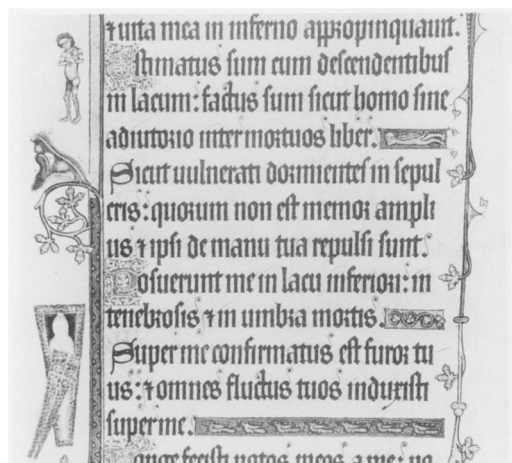 ⁊ uita mea in inferno appropinquauit.
Estimatus sum cum descendentibus
in lacum: factus sum sicut homo sine
adiutorio inter mortuos liber.
Sicut uulnerati dormientes in sepul
cris: quorum non est memor ampli
us ⁊ ipsi de manu tua repulsi sunt.
Posuerunt me in lacu inferiori: in
tenebrosis ⁊ in umbra mortis.
Super me confirmatus est furor tu
us: ⁊ omnes fluctus tuos induxisti
super me.
Longe fecisti notos meos a me: po